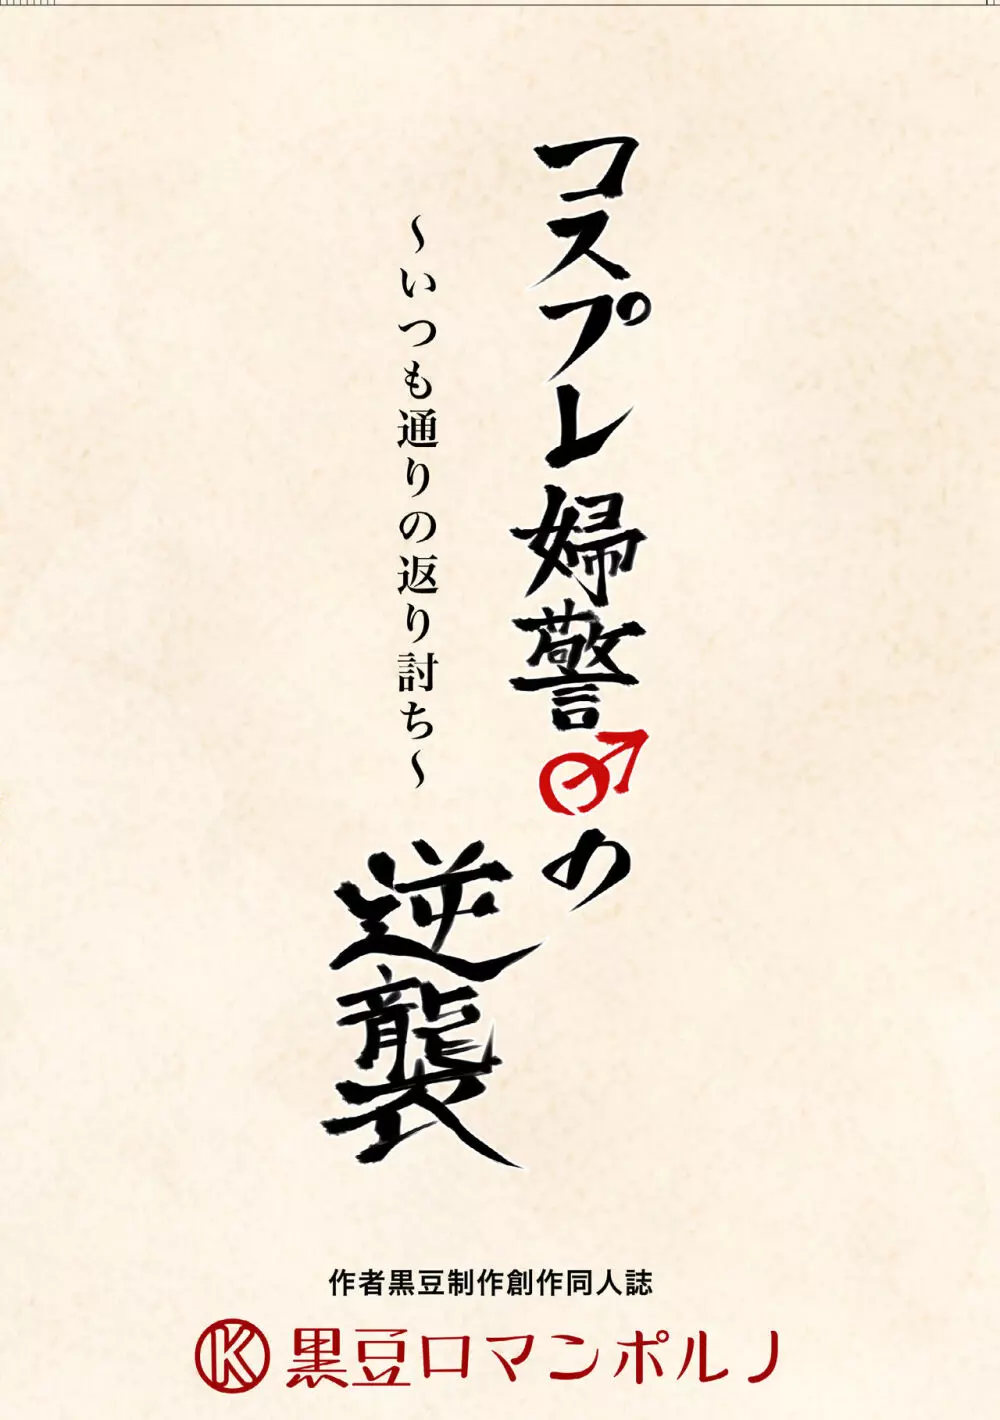 コスプレ婦警♂の
逆襲
〜いつも通りの返り討ち〜
作者黒豆制作創作同人誌
K 黒豆ロマンポルノ